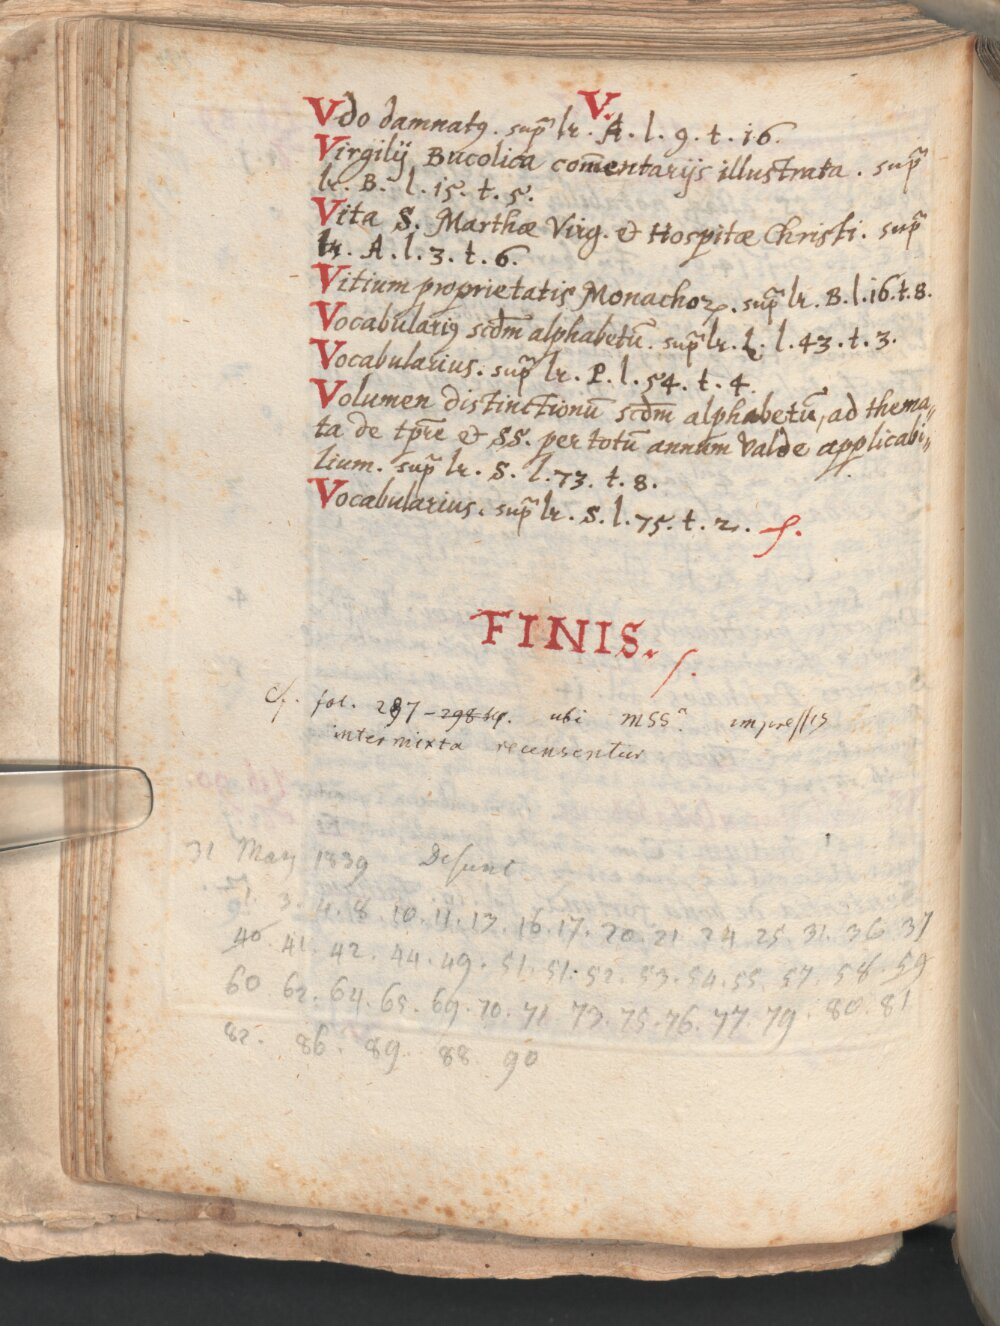 V.
Vdo damnatꝰ. sup̃ lr. A. l. 9. t. 16.
Virgilij Bucolica com̃entarijs illustrata. sup̃
lr. B. l. 15. t. 5.
Vita S. Marthæ Virg. & Hospitæ Christi. sup̃
lr. A. l. 3. t. 6.
Vitium proprietatis Monachoꝝ. sup̃ lr. B. l. 16. t. 8.
Vocabulariꝰ scd̃m alphabetũ. sup̃ lr. L. l. 43. t. 3.
Vocabularius. sup̃ lr. P. l. 54. t. 4.
Volumen distinctionũ scd̃m alphabetũ, ad thema„
ta de tp̃re & SS. per totũ annum valde applicabi„
lium. sup̃ lr. S. l. 73. t. 8.
Vocabularius. sup̃ lr. S. l. 75. t. 2.
FINIS.
Cf. fol. 297-298 ubi MSSᵃ impressis
intermixta recensentur
31 May 1839 Desunt
1. 3. 4. 8 10. 11. 13. 16. 17. 20. 21 24 25 31. 36 37
40. 41. 42. 44. 49. 51. 51. 52. 53. 54. 55. 57. 58. 59
60. 62. 64. 65. 69. 70. 71 73. 75. 76. 77. 79. 80. 81
82. 86. 89. 88. 90